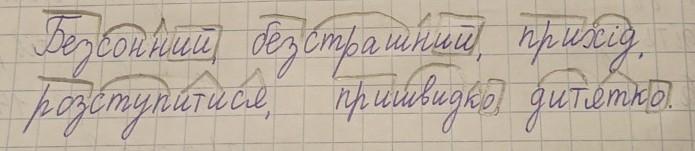 Безсонний, безстрашний, прихід,
розступитися, пришвидко, дитятко.